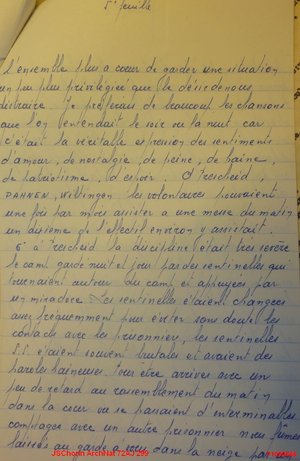 5e feuille
l'ensemble plus a coeur de garder une situation
un peu plus privilégiée que le désir de nous
distraire. Je préferais de beaucoup les chansons
que l'on entendait le soir ou la nuit car
c'était la véritable expression des sentiments
d'amour, de nostalgie, de peine, de haine,
de patriotisme, d'espoir. A Treicheid,
DAHNEN, Wittingen les volontaires pouvaient
une fois par mois assister a une messe du matin
un dixieme de l'effectif environ y assistait.
6° a Treicheid la discipline était tres severe
le camp gardé nuit et jour par des sentinelles qui
tournaient autour du camp et appuyees par
un miradore. Les sentinelles etaient changees
assez frequemment pour eviter sans doute les
contacts avec les prisonniers, les sentinelles
S.S. etaient souvent brutales et avaient des
paroles haineuses. Pour etre arrives avec un
peu de retard au rassemblement du matin
dans la cour ou se passaient d'interminables
comptages avec un autre prisonnier nous fûmes
laissés au garde a vous dans la neige par
JSChorin ArchNat 72AJ 299